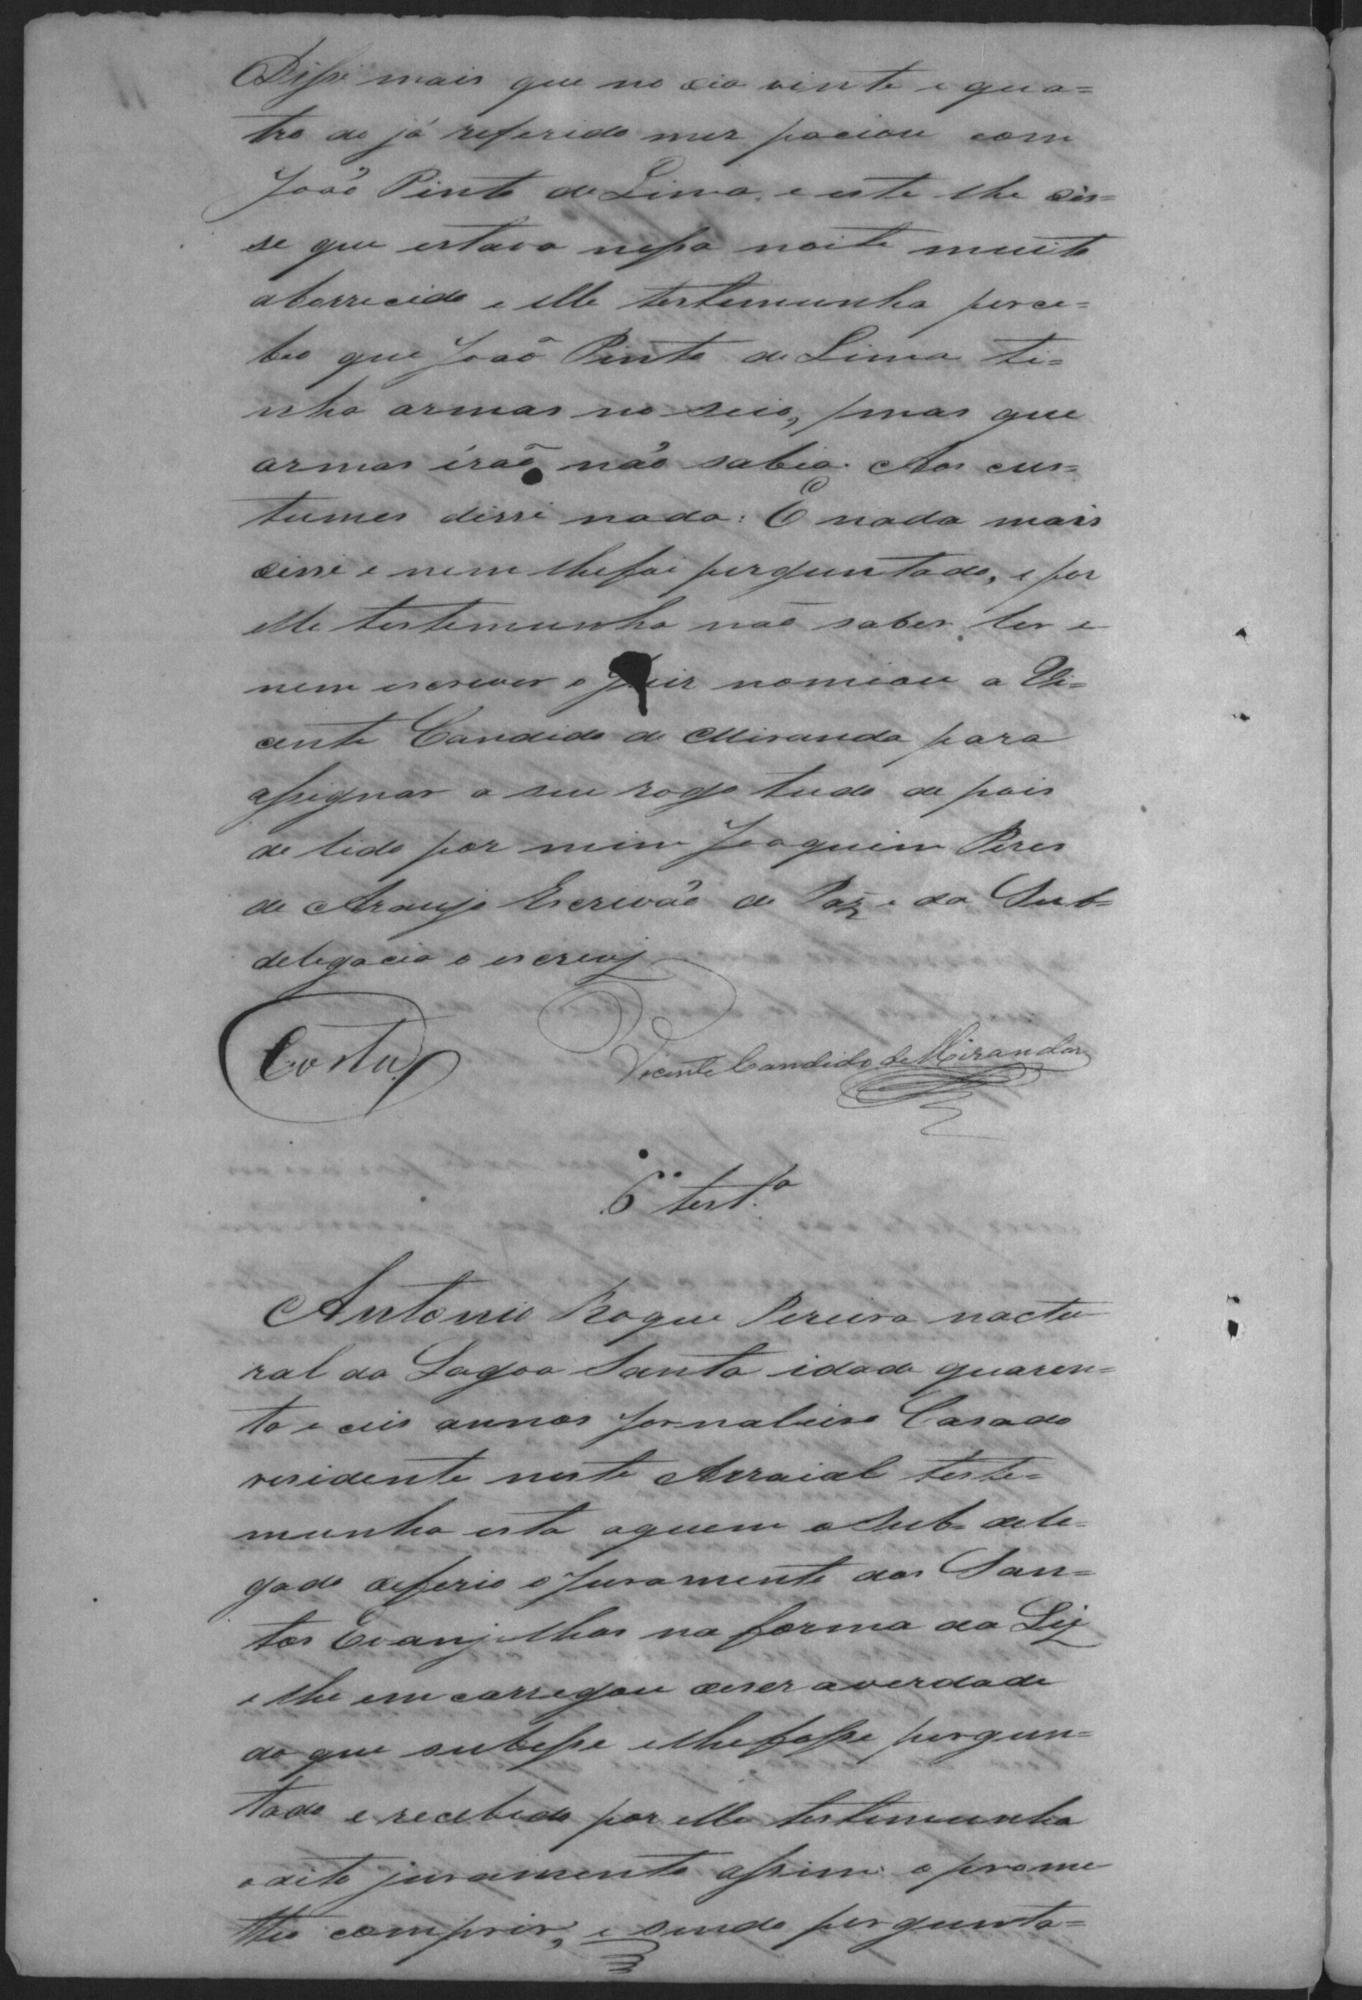 Disse mais que no dia vinte e qua=
tro do já referido mez paciou com
João Pinto de Lima, e este lhe dis=
se que estava nessa noite muito
aborrecido e elle testemunha perce=
beo que João Pinto de Lima ti=
nha armas no seio, mas que
armas érão não sabia. Aos cus=
tumes disse nada: E nada mais
disse e nem lhe foi perguntado, e por
elle testemunha não saber ler e
nem escrever o Juiz nomiou a Vi=
cente Candido de Miranda para
assignar a seu rogo tudo de pois
de lido por mim Joaquim Peres
de Araujo Escrivão de Paz e da Sub=
delegacia o escrevj
Costa
Vicente Candido de Miranda
6ª testª
Antonio Roque Pereira nactu
ral da Lagoa Santa idade quaren=
ta e ceis annos Jornaleiro Casado
residente neste Arraial teste=
munha esta aquem o Sub=dele=
gado deferio o Juramento dos San=
tos Evanjelhos na forma da Lej
e lhe em carregou diser averdade
do que subesse e lhe fosse pergun=
tado e recebido por elle testemunha
o dito juramento assim o prome
tteo comprir, e sendo pergunta=